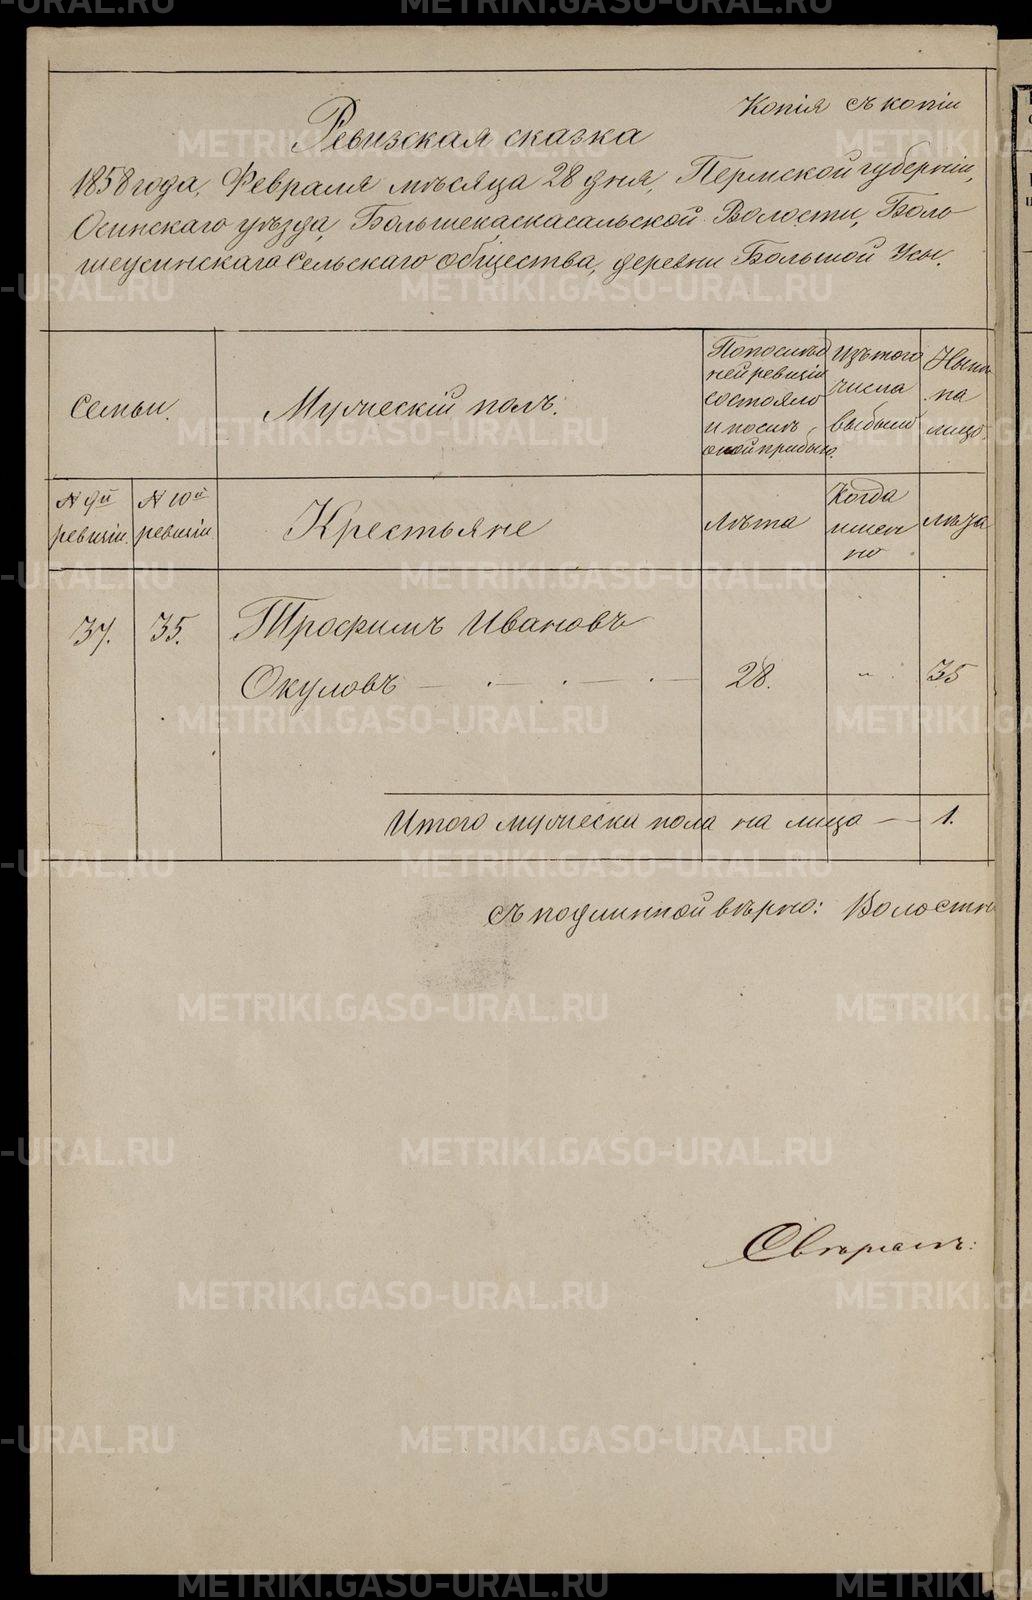 Копія съ копіи
Ревизская сказка
1858 года, Февраля мѣсяца 28 дня, Пермской губерніи,
Осинскаго уѣзда, Большекаскасальской Волости, Боль
шеусинскаго Сельскаго общества, деревни Большой Усы.
Семьи.
Мужескій полъ.
По послѣд
ней ревизіи
состояло
и послѣ
оной прибыло.
Изъ того
числа
выбыло
Нынѣ
на
лицо.
№ 9й
ревизіи.
№ 10й
ревизіи
Крестьяне
лѣта
Когда
имен
но
лѣта
37. 35. Трофимъ Ивановъ
Окуловъ 28. " 35
Итого мужеска пола на лицо — 1.
Съ подлинной вѣрно: Волостн
Свѣрялъ:
METRIKI.GASO-URAL.RU